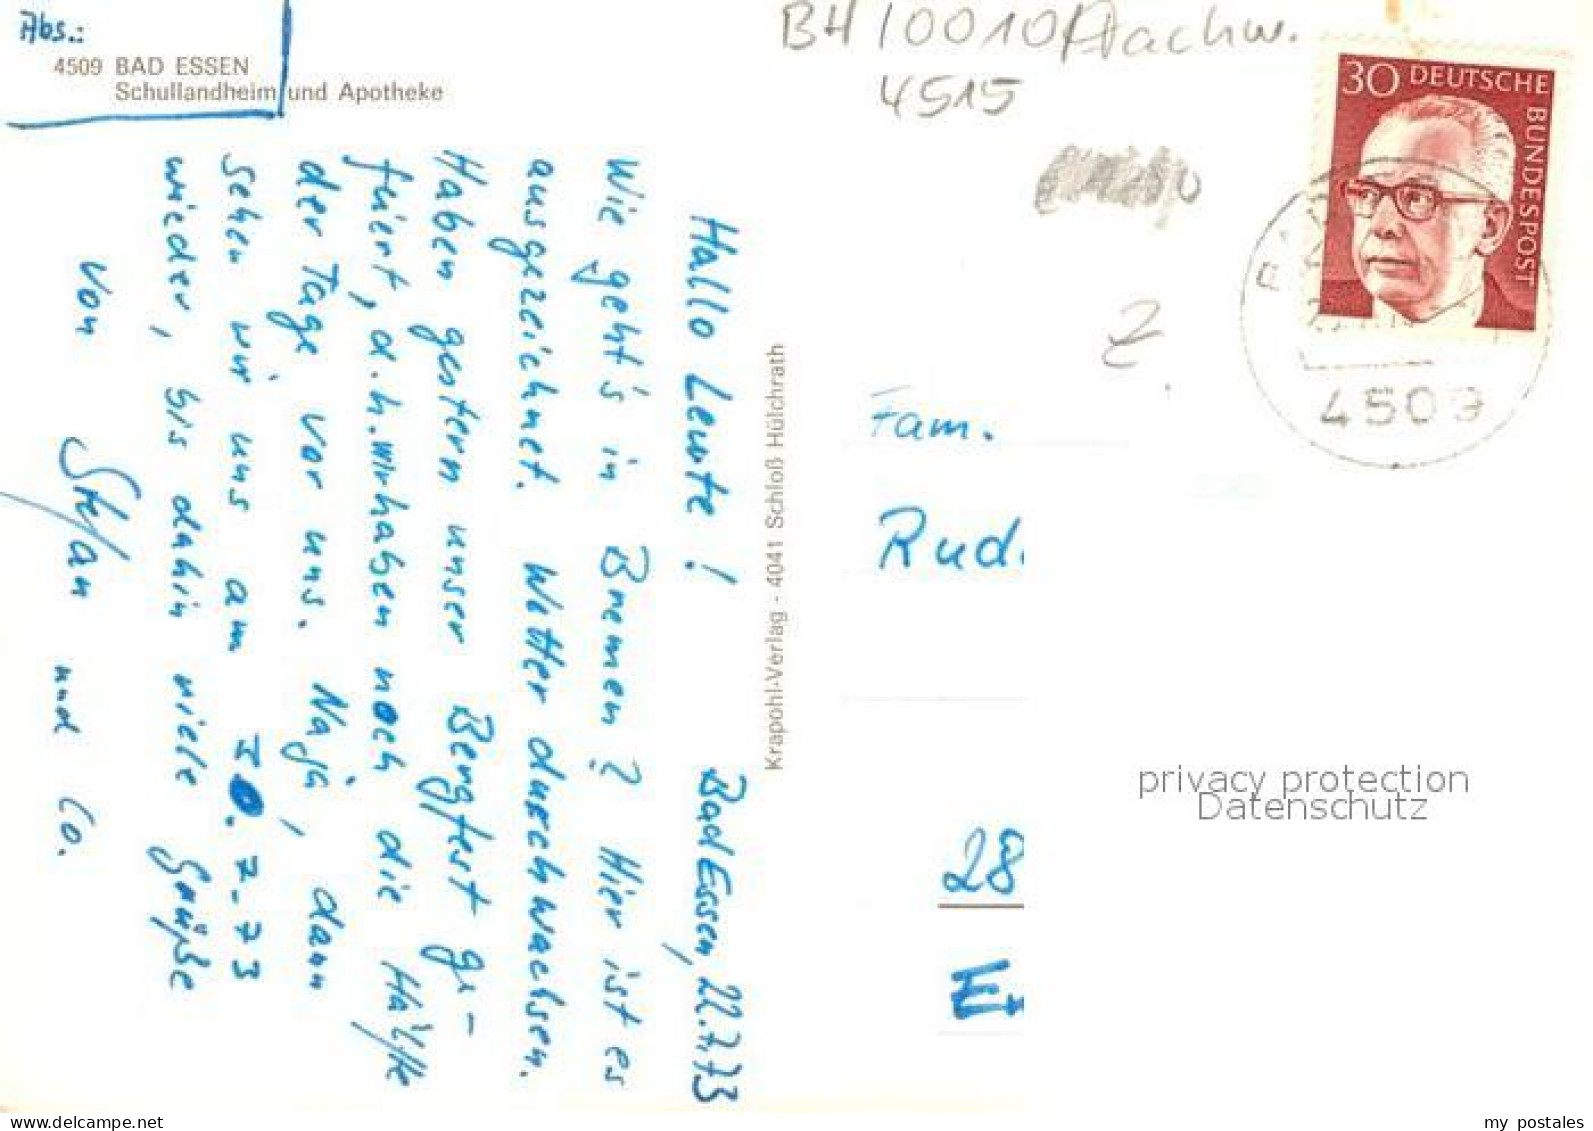 Abs.:
4509 BAD ESSEN
Schullandheim und Apotheke
Bad Essen, 22.7.73
Hallo Leute !
Wie geht's in Bremen ? Hier ist es
ausgezeichnet. Wetter durchwachsen.
Haben gestern unser Bergfest ge-
fiert, d.h. wir haben noch die Hälfte
der Tage vor uns. Naja, dann
sehen wir uns am 30.7.73
wieder, bis dahin viele Grüße
von Stefan und Co.
Krapohl-Verlag - 4041 Schloß Hülchrath
BH 10010 Fachw.
4515
Z
30 DEUTSCHE BUNDESPOST
4509
Fam.
Rud
28
E
privacy protection
Datenschutz
my postales
my_postales